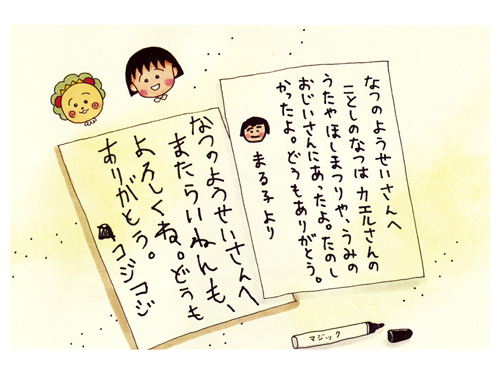 なつのようせいさんへ
ことしのなつは カエルさんの
うたやほしまつりや、うみの
おじいさんにあったよ。たのし
かったよ。どうもありがとう。
まる子より
なつのようせいさんへ
またらいねんも、
よろしくね。どうも
ありがとう。
コジコジ
マジック